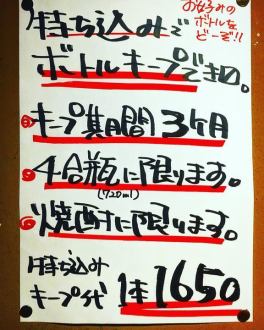 お好みの
ボトルを
どーぞ!!
持ち込みで
ボトルキープでき〼。
キープ期間3ヶ月
4合瓶に限ります。
(720ml)
焼酎に限ります。
持ち込み
キープ代 1本1650